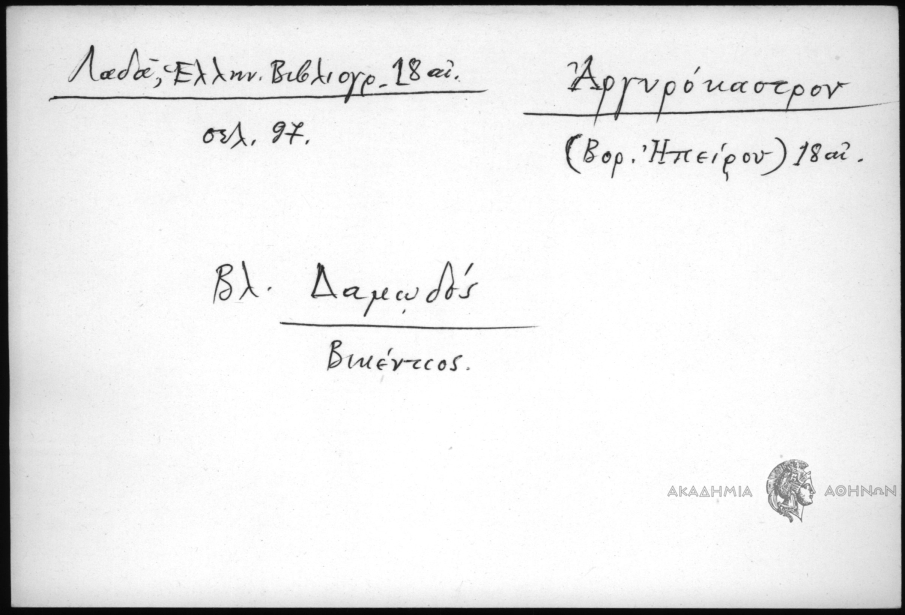 Λαδᾶ, Ἑλλην. Βιβλιογρ. 18 αἰ.
σελ. 97.
Ἀργυρόκαστρον
(Βορ. Ἠπείρου) 18 αἰ.
Βλ. Δαμῳδός
Βικέντιος.
ΑΚΑΔΗΜΙΑ ΑΘΗΝΩΝ